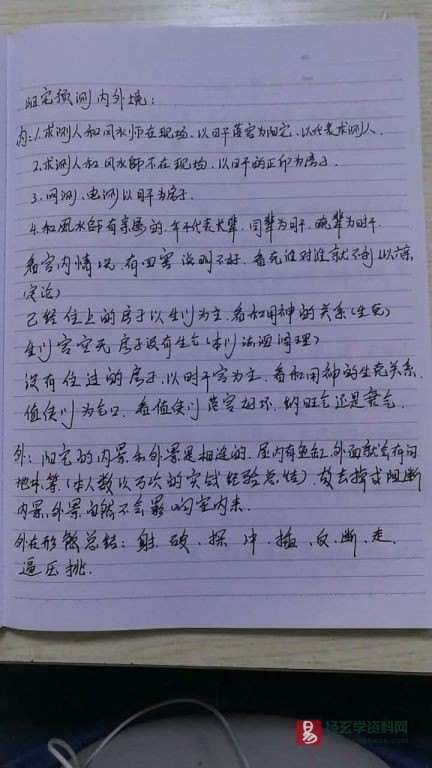 阳宅预测内外境:
内:1.求测人和风水师在现场,以日干落宫为阳宅,以代表求测人.
2.求测人和风水师不在现场,以日干的正印为房子.
3.网测、电测以日干为房子.
4.和風水師有亲属的.年干代表长辈,同辈为日干,晚辈为时干.
看宫内情况,有四害说明不好,看克谁对谁就不利(以六亲
定论)
已经住上的房子以生门为主.看和用神的关系(生克)
生门宫空亡房子没有生气(本门法洒调理)
没有住过的房子,以时干宫为主,看和用神的生克关系.
值使门为气口,看值使门落宫好坏.纳旺气还是衰气.
外:阳宅的内景和外景是相连的,屋内有鱼缸,外面就会有河
地球等(本人数以万次的实战经验总结)故去掉或阻断
内景,外景自然不会影响室内来.
外在形煞总结:射、破、探、冲、插、反、断、走、
逼压挑.
经玄学资料网